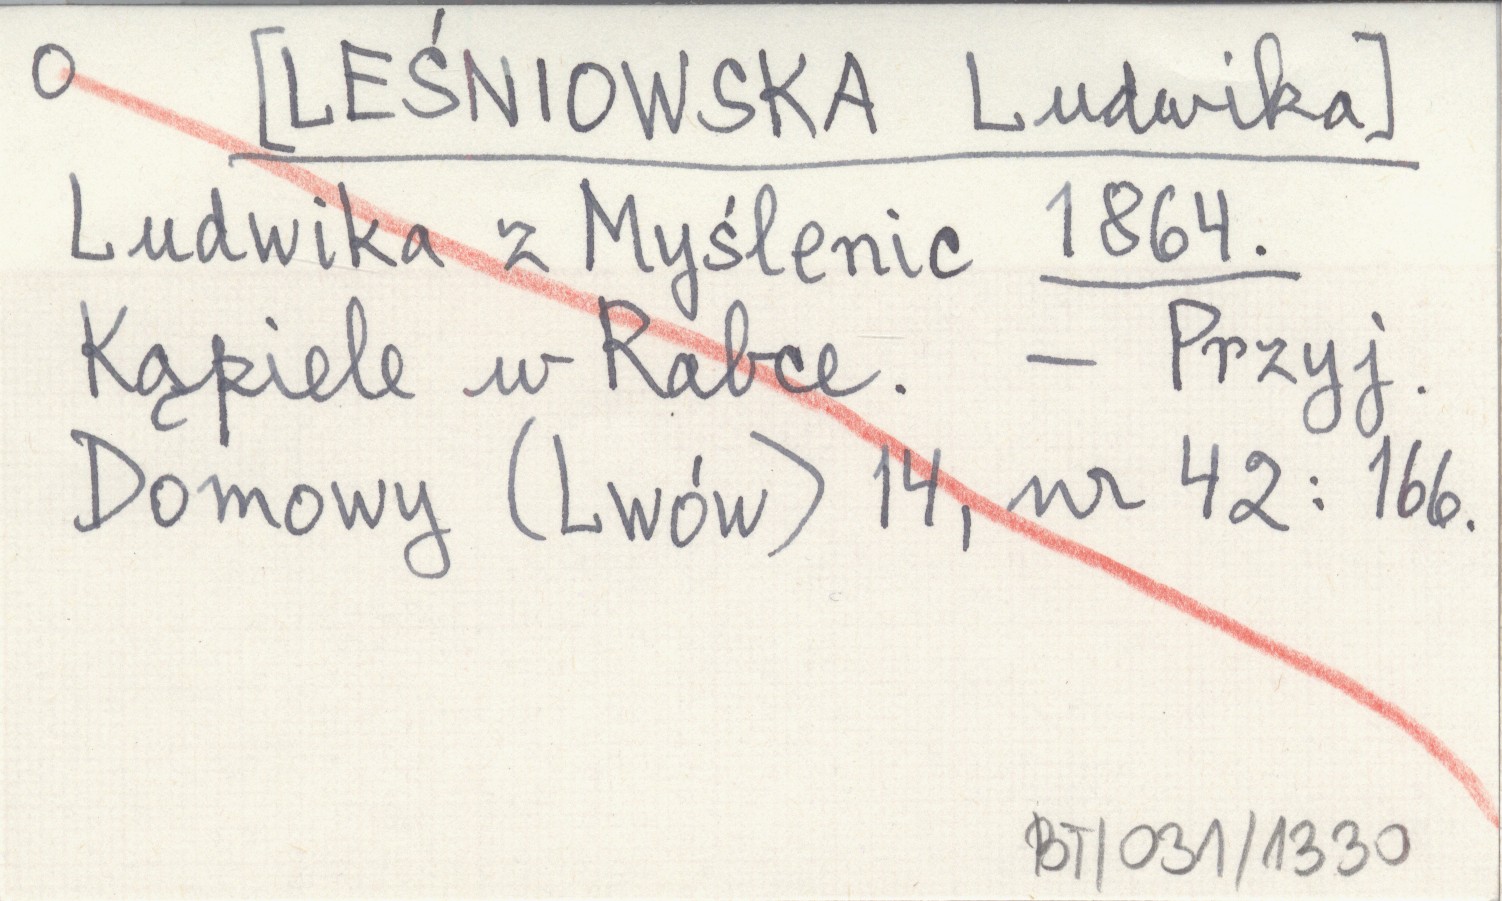 O [LEŚNIOWSKA Ludwika]
Ludwika z Myślenic 1864.
Kąpiele w Rabce. – Przyj.
Domowy (Lwów) 14, nr 42: 166.
BT/031/1330